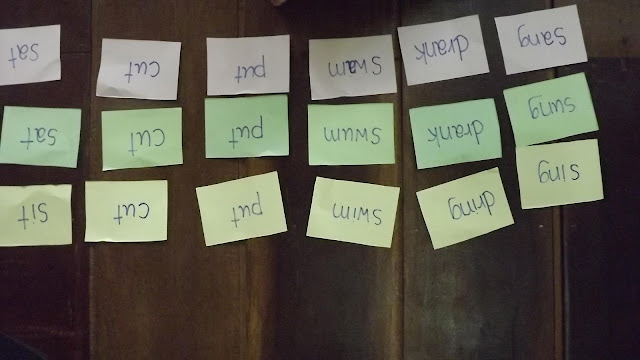 sing dring swim put cut sit
sung drank swum put cut sat
sang drank swam put cut sat